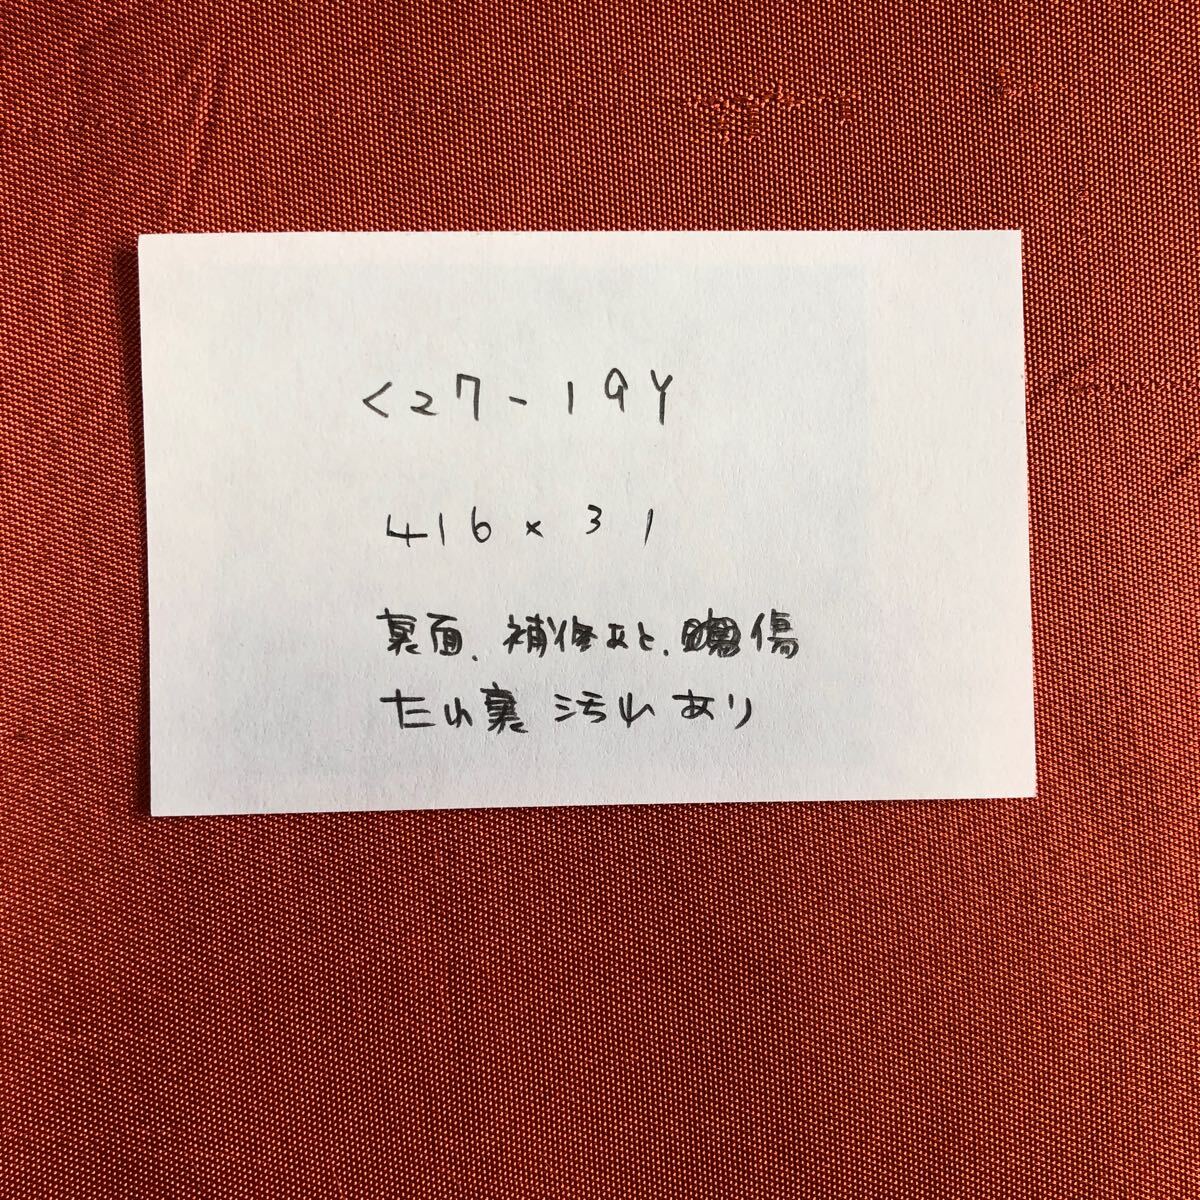 く27-19Y
416×31
裏面、補修あと、傷
たれ裏汚れあり